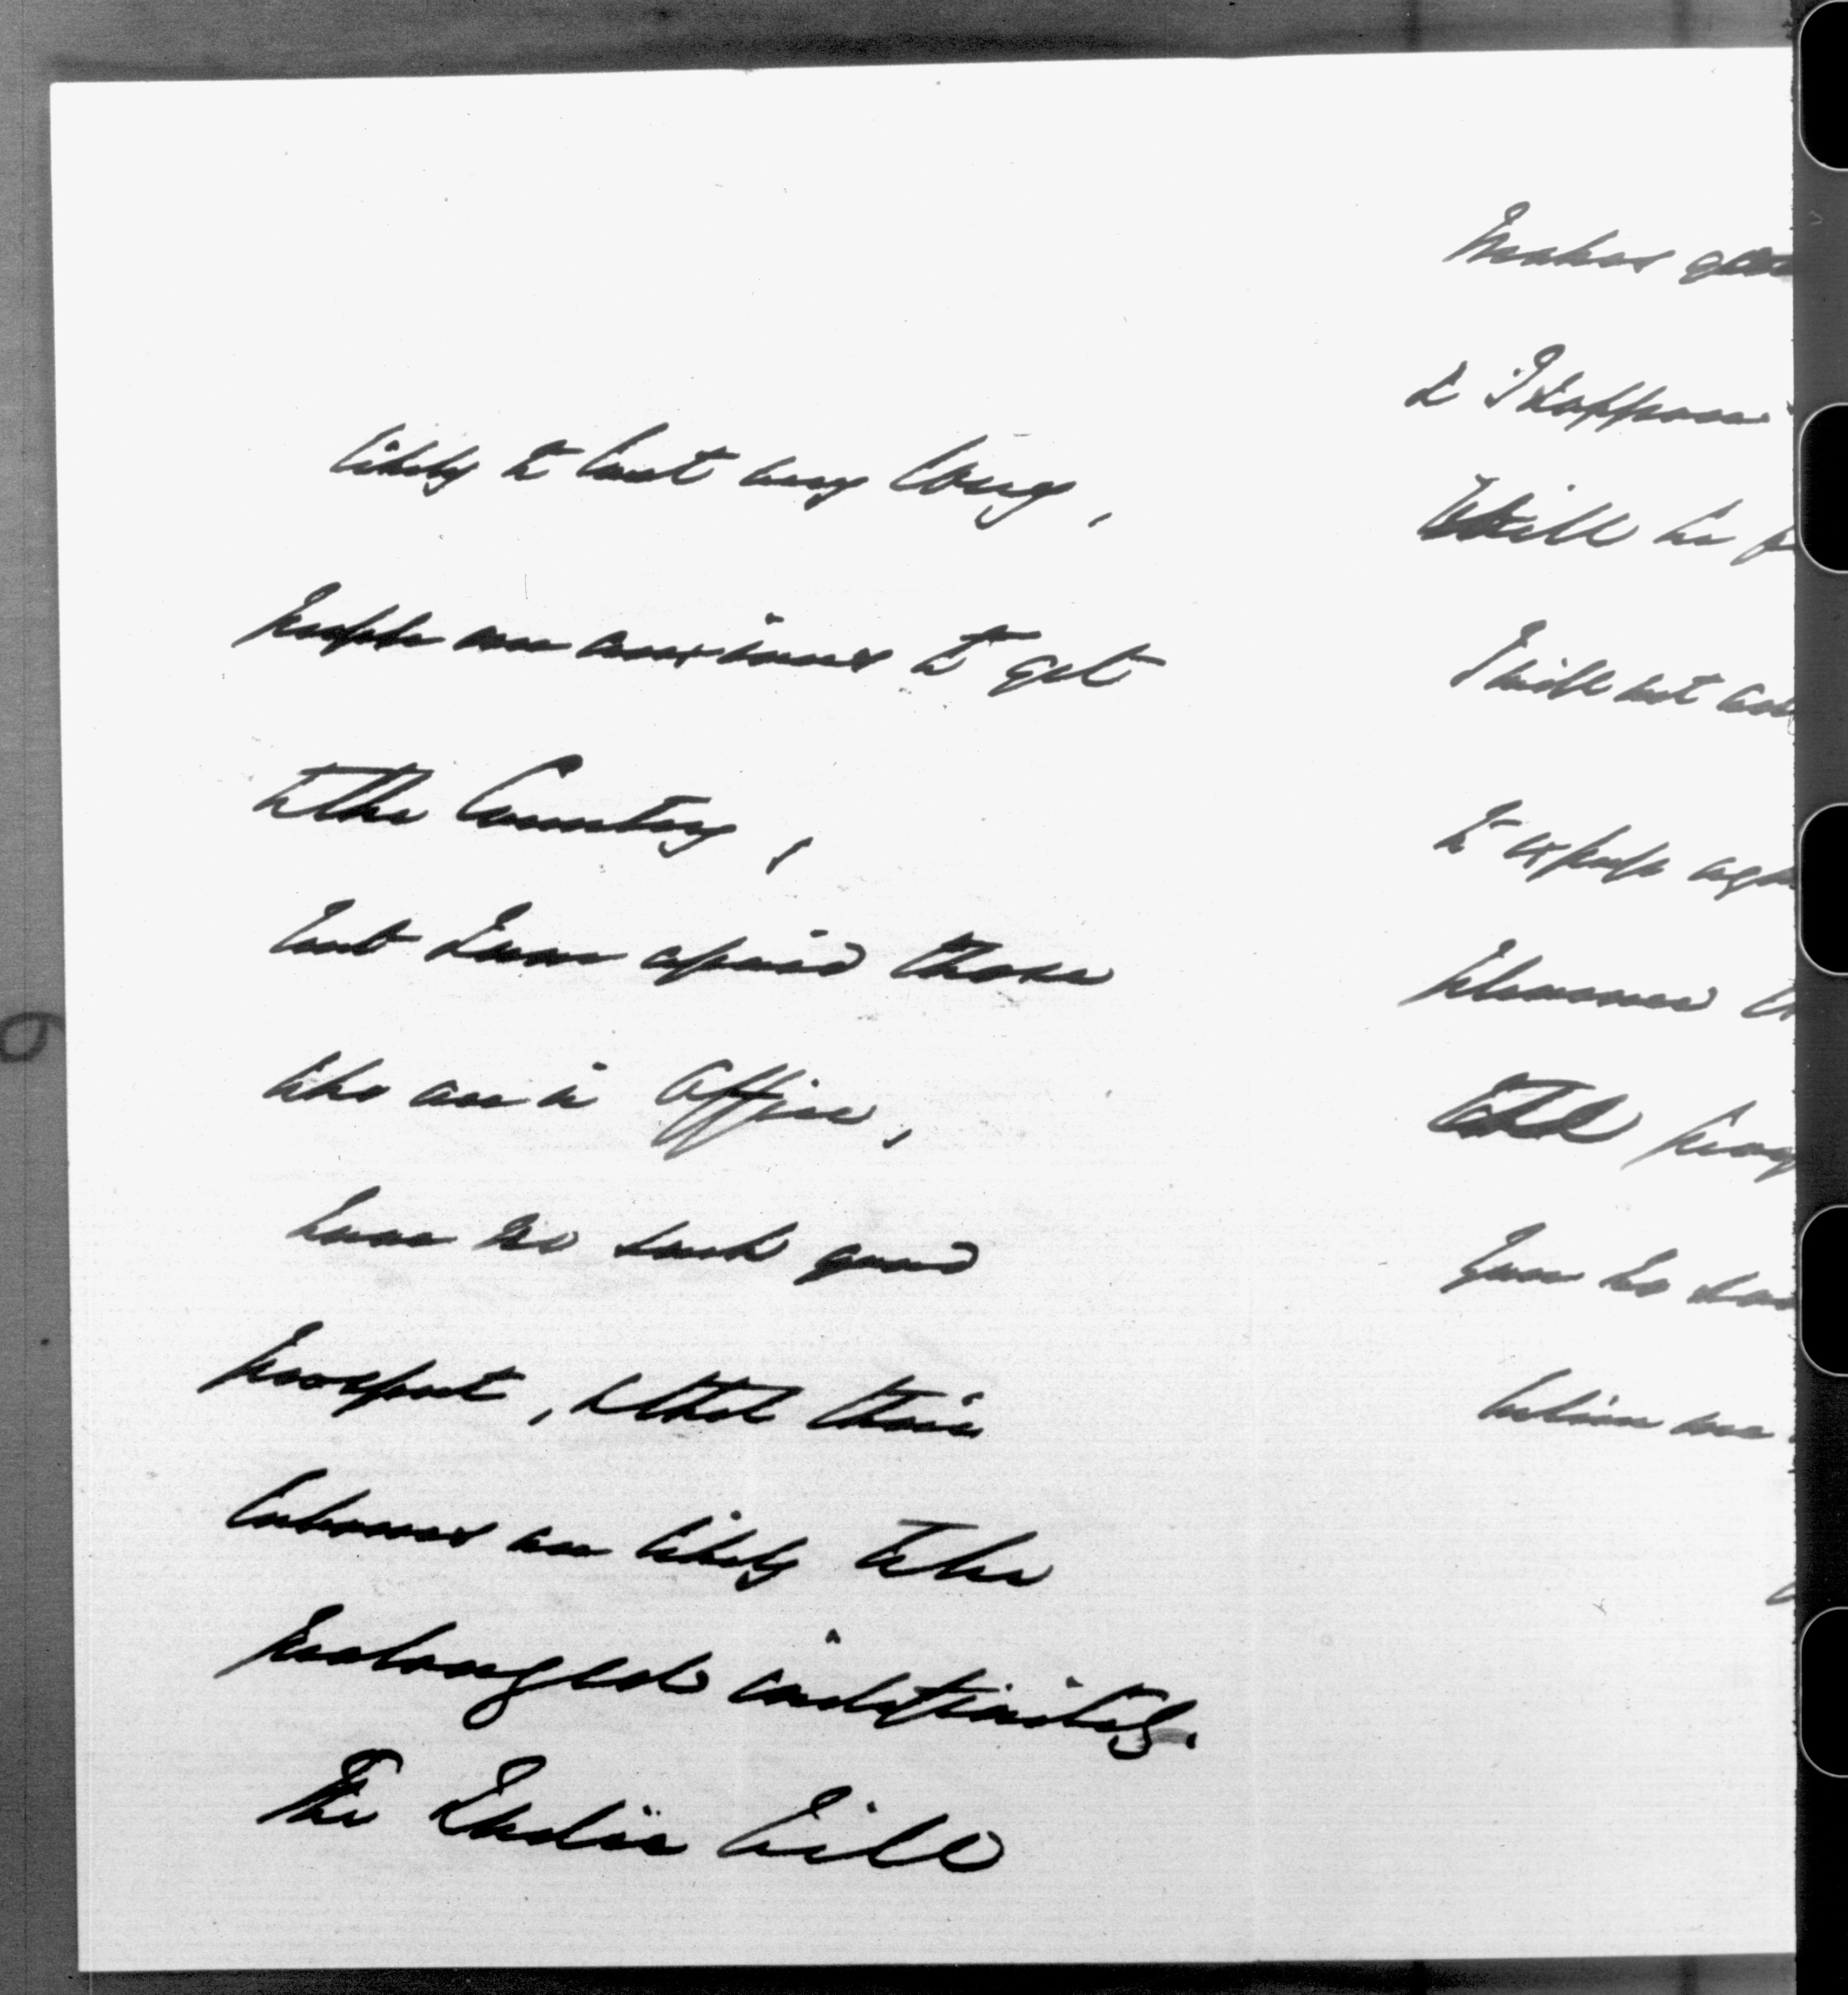 likely to last very long,
people are anxious to get
to the Country,
but I am afraid those
who are in Office,
have no such good
prospect, & that their
labours are likely to be
prolonged indefinitely.
The India Bill
makes
& I suppose
Still be
I will not
to
pleasures
till
have no
believe me